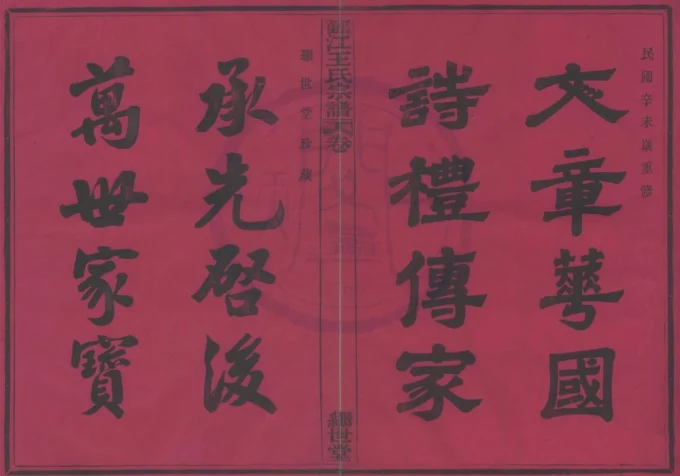 民國辛未歲重修
文章華國
詩禮傳家
江王氏宗譜卷
繼世堂
繼世堂珍藏
承先啓後
萬世家寶